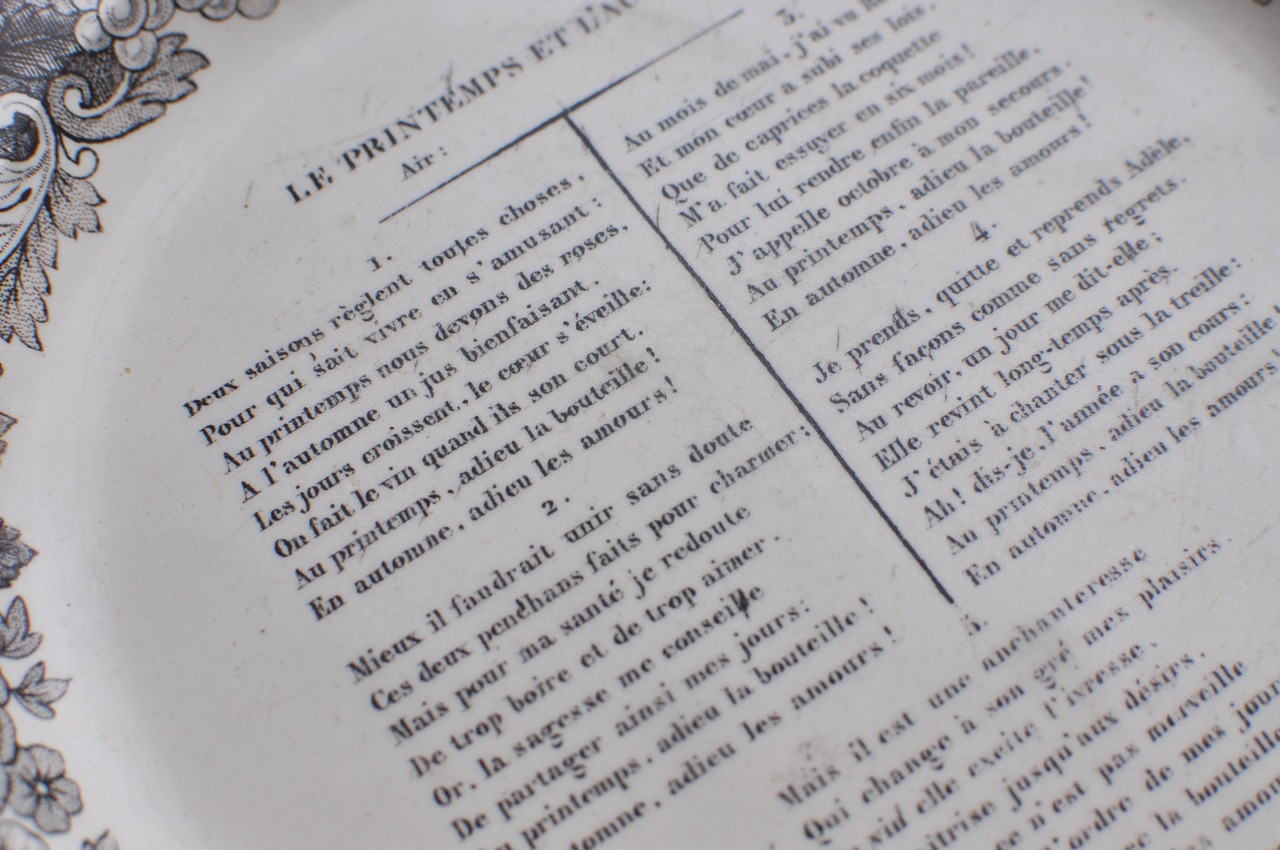 LE PRINTEMPS ET
Air :
1.
Deux saisons règlent toutes choses,
Pour qui sait vivre en s'amusant :
Au printemps nous devons des roses,
A l'automne un jus bienfaisant.
Les jours croissent, le cœur s'éveille:
On fait le vin quand ils son court.
Au printemps, adieu la bouteille!
En automne, adieu les amours!
2.
Mieux il faudrait unir sans doute
Ces deux penchans faits pour charmer;
Mais pour ma santé je redoute
De trop boire et de trop aimer.
Or, la sagesse me conseille
De partager ainsi mes jours:
printemps, adieu la bouteille!
adieu les amours!
3.
Au mois de mai, j'ai vu
Et mon cœur a subi ses lois.
Que de caprices la coquette
M'a fait essuyer en six mois!
Pour lui rendre enfin la pareille,
J'appelle octobre à mon secours.
Au printemps, adieu la bouteille!
En automne, adieu les amours!
4.
Je prends, quitte et reprends Adèle,
Sans façons comme sans regrets.
Au revoir, un jour me dit-elle;
Elle revint long-temps après.
J'étais à chanter sous la treille:
Ah! dis-je, l'année a son cours:
Au printemps, adieu la bouteille!
En automne, adieu les amours!
5.
Mais il est une enchanteresse
Qui change à son gré mes plaisirs.
elle excite l'ivresse,
jusqu'aux désirs.
n'est pas merveille
de mes
la bouteille
les